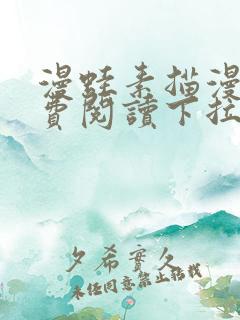 漫蛙素描漫
費閱讀下拉
夕希實久
未经同意禁止转载